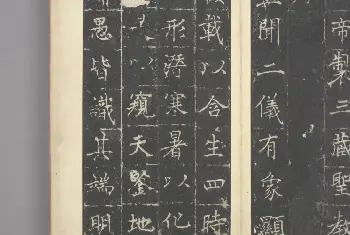 帝製三藏聖教
聞二儀有象顯
載以含生四時
形潛寒暑以化
以窺天鑒地
愚皆識其端明